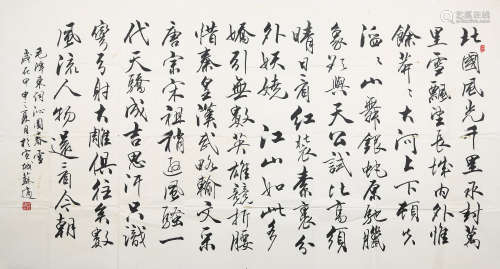 北國風光千里冰封萬
里雪飄望長城內外惟
餘莽莽大河上下頓失
滔滔山舞銀蛇原馳臘
象欲與天公試比高須
晴日看紅裝素裹分
外妖嬈 江山如此多
嬌引無數英雄競折腰
惜秦皇漢武略輸文采
唐宗宋祖稍遜風騷一
代天驕成吉思汗只識
彎弓射大雕俱往矣數
風流人物還看今朝
毛澤東詞沁園春雪
歲在甲申之夏月於宣城蘇適